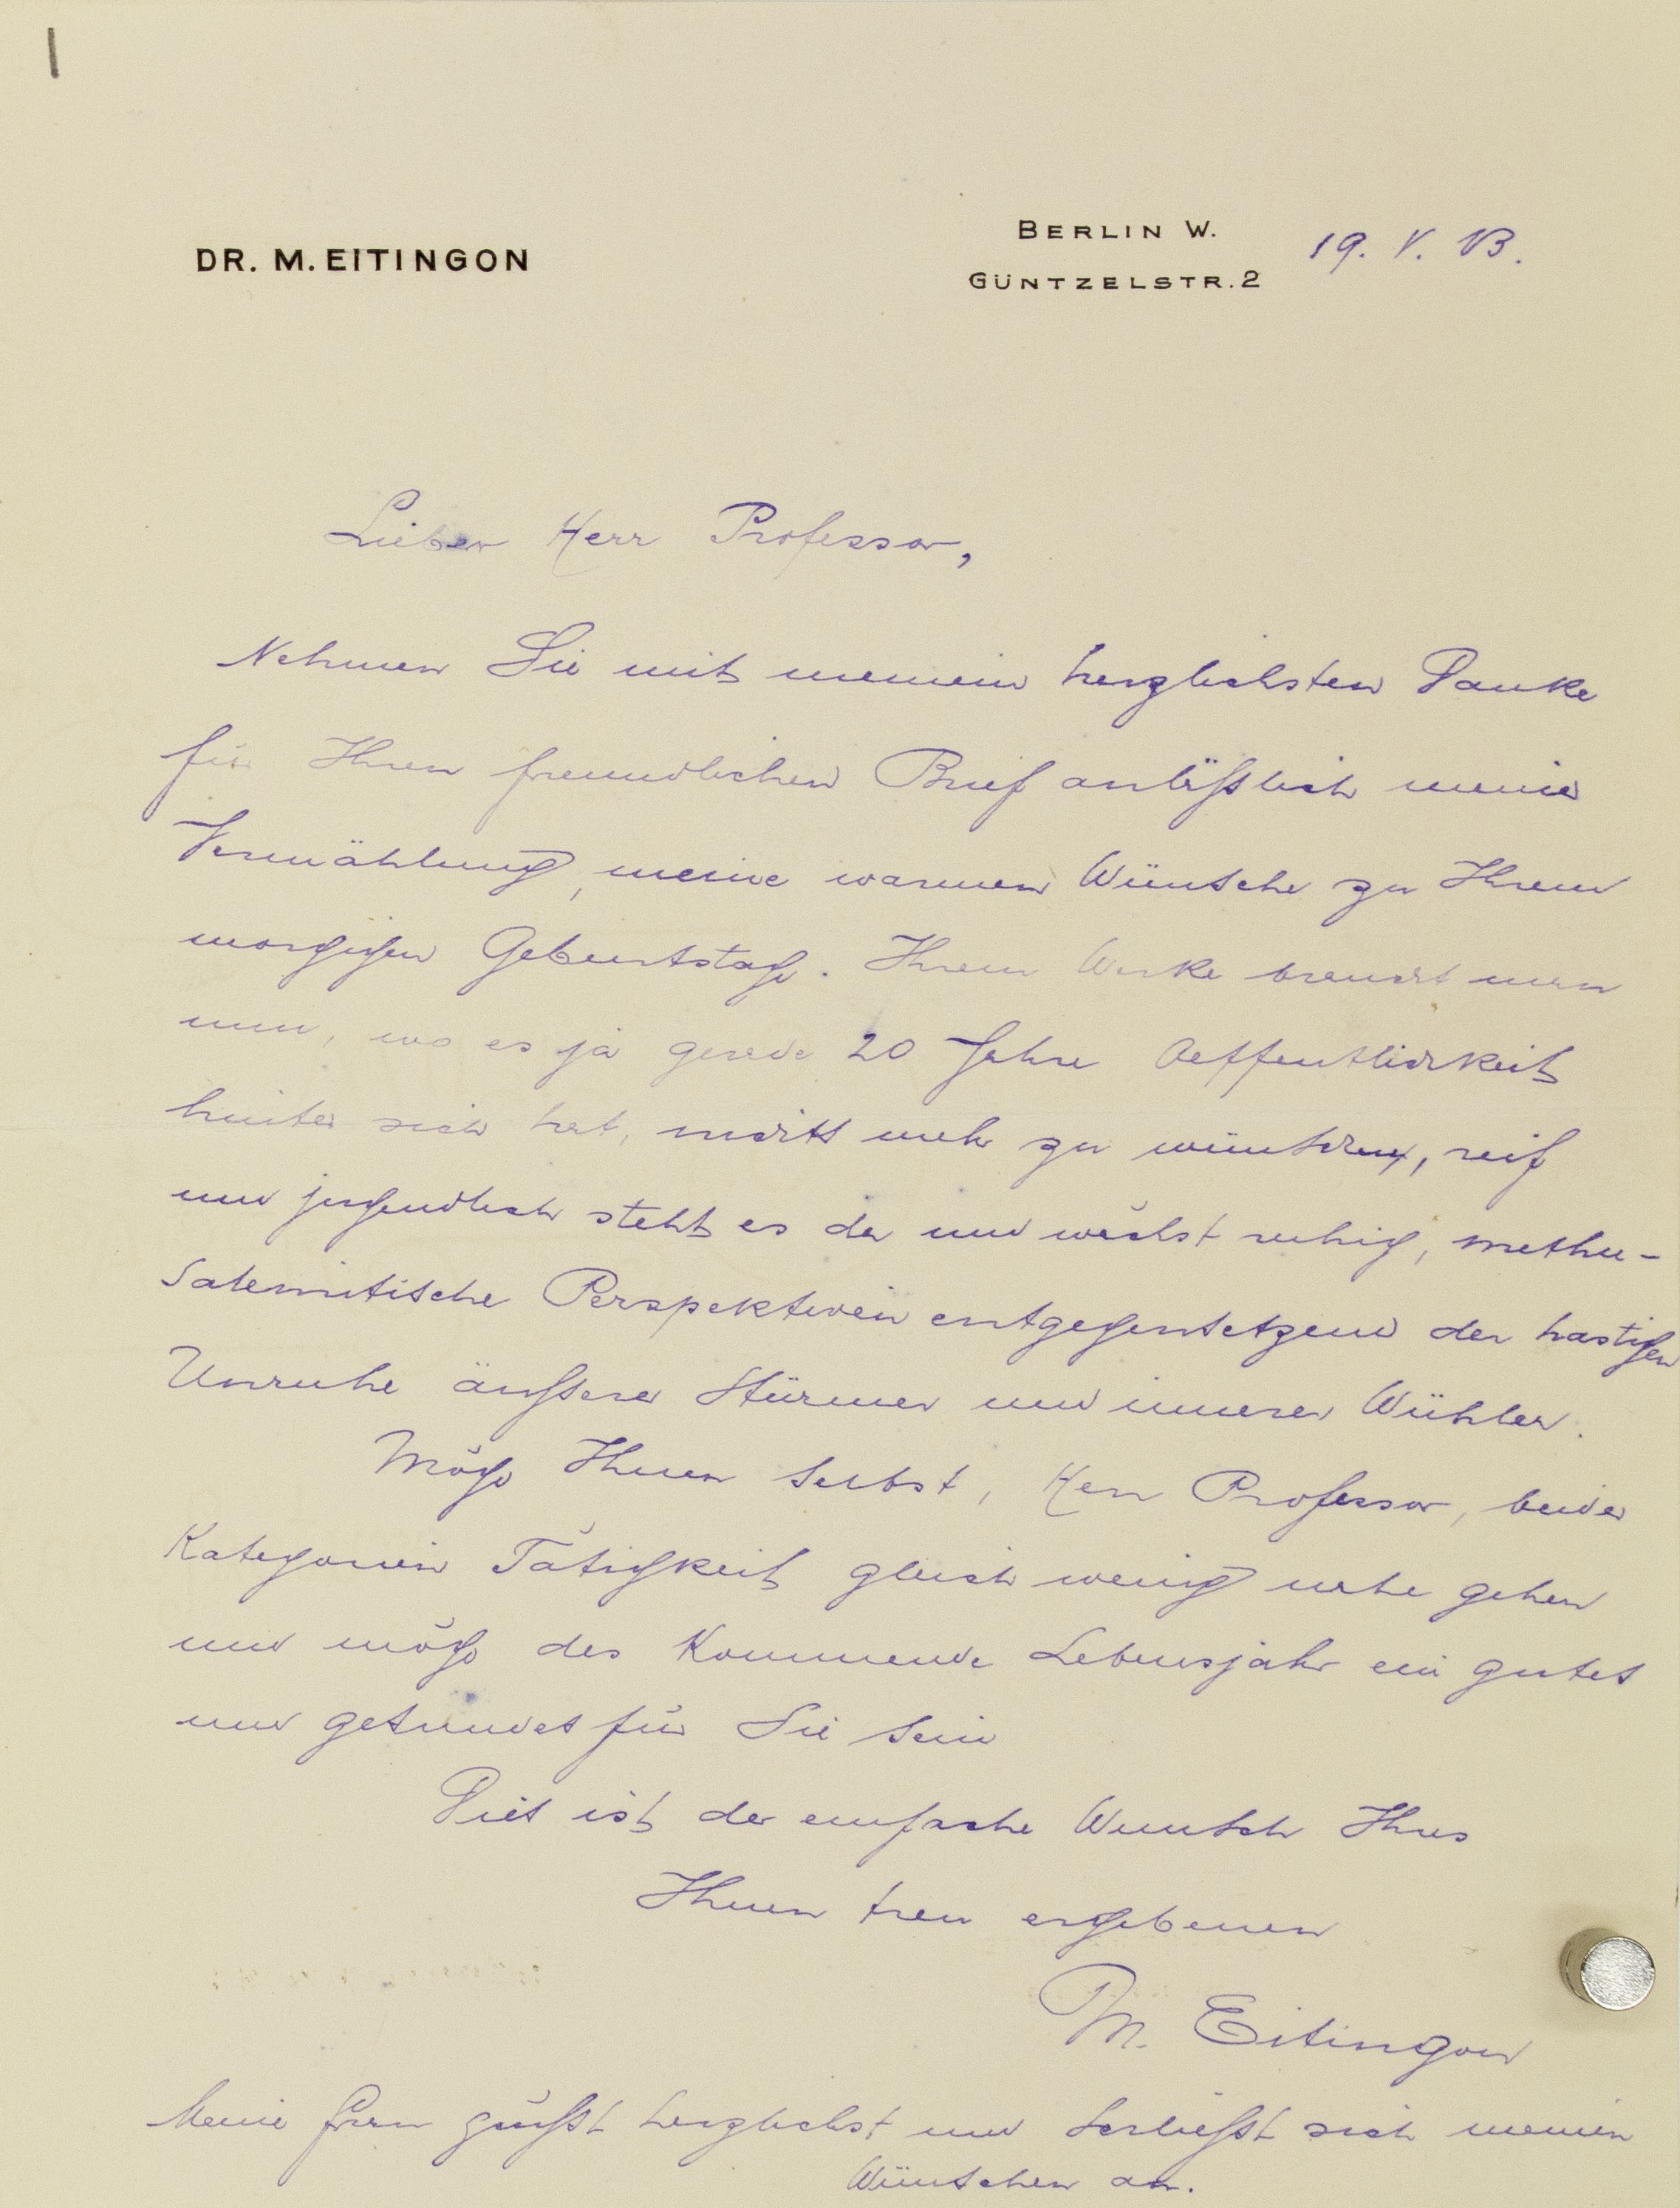 DR. M. EITINGON
BERLIN W.
GÜNTZELSTR. 2
19. V. 13.
Lieber Herr Professor,
Nehmen Sie mit meinem herzlichsten Danke
für Ihren freundlichen Brief anläßlich meiner
Vermählung, meine warmen Wünsche zu Ihrem
morgigen Geburtstage. Ihrem Werke braucht man
nun, wo es ja gerade 20 Jahre Oeffentlichkeit
hinter sich hat, nichts mehr zu wünschen, reif
und jugendlich steht es da und wächst ruhig, methu-
salemitische Perspektiven entgegensetzend der hastigen
Unruhe äußerer Stürmer und innerer Wühler.
Möge Ihnen selbst, Herr Professor, beider
Kategorien Tätigkeit gleich wenig nahe gehen
und möge das kommende Lebensjahr ein gutes
und gesundes für Sie sein
Dies ist der einfache Wunsch Ihres
Ihnen treu ergebenen
M. Eitingon
Meine Frau grüßt herzlichst und schließt sich meinen
Wünschen an.